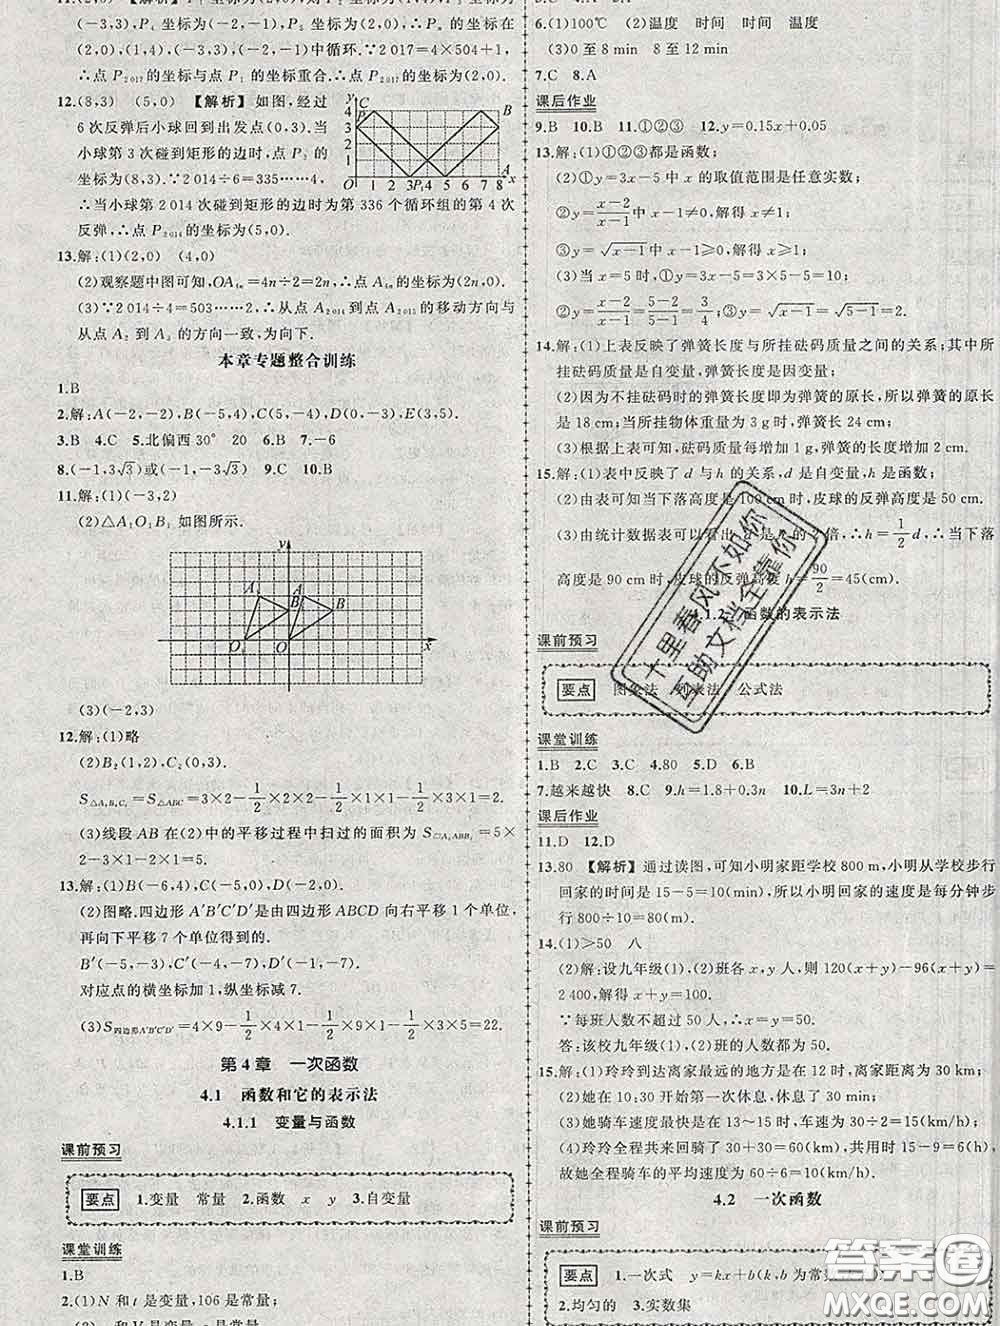 (-3,3),P₄ 坐标为(-2,-1),P₅ 坐标为(2,0),可知坐标在
(2,0),(1,4),(-3,3),(-2,-1)中循环.∵2 017=4×504+1,
∴点 P₂₀₁₇的坐标与点 P₁ 的坐标重合.∴点 P₂₀₁₇坐标为(2,0).
12.(8,3) (5,0) 【解析】如图,经过
6次反弹后小球回到出发点(0,3).当
小球第 3 次碰到矩形的边时,坐标为
(8,3).∵2 014÷6=335……4,
∴当小球第 2 014 次碰到矩形的边时为第 336 个循环组的第 4 次
反弹,∴点 P₂₀₁₄的坐标为(5,0).
y
C
P
4
3
2
1
B
A
O 1 2 3P₁4 5 6 7 8 x
13.解:(1)(2,0) (4,0)
(2)观察题中图可知,OA₄ₙ=4n÷2=2n,∴点 A₄ₙ坐标为(2n,0).
(3)∵2 014÷4=503……2,∴从点 A₂₀₁₄到点 A₂₀₁₅的移动方向与
从点 A₂ 到 A₃ 的方向一致,为向下.
本章专题整合训练
1.B
2.解:A(-2,-2),B(-5,4),C(5,-4),D(0,-3),E(3,5).
3.B 4.C 5.北偏西30° 20 6.B 7.-6
8.(-1,3√3)或(-1,-3√3) 9.C 10.B
11.解:(1)(-3,2)
(2)△A₁O₁B₁ 如图所示.
y
A₁ A
B₁ B
O₁ O x
(3)(-2,3)
12.解:(1)略
(2)B₂(1,2),C₂(0,3).
S△A₂B₂C₂=S△ABC=3×2-1/2×2×2-1/2×1×1-1/2×3×1=2.
(3)线段 AB 在(2)中的平移过程中扫过的面积为 S▱A₂ABB₂=5×
2-3×1-2×1=5.
13.解:(1)(B(-6,4),C(-5,0),D(-1,0).
(2)图略.四边形 A′B′C′D′是由四边形 ABCD 向右平移 1 个单位,
再向下平移 7 个单位得到的.
B′(-5,-3),C′(-4,-7),D′(0,-7).
对应点的横坐标加 1,纵坐标减 7.
(3)S四边形A′B′C′D′=4×9-1/2×4×1-1/2×1×7-1/2×3×5=22.
第 4 章 一次函数
4.1 函数和它的表示法
4.1.1 变量与函数
课前预习
要点 1.变量 常量 2.函数 x y 3.自变量
课堂训练
1.B
2.(1)N 和 t 是变量,106 是常量;
6.(1)100℃ (2)温度 时间 时间 温度
(3)0 至 8 min 8 至 12 min
7.C 8.A
课后作业
9.B 10.B 11.①②③ 12.y=0.15x+0.05
13.解:(1)①②③都是函数;
(2)①y=3x-5 中 x 的取值范围是任意实数;
②y=x-2/x-1中 x-1≠0,解得 x≠1;
③y=√x-1中 x-1≥0,解得 x≥1;
(3)当 x=5 时,①y=3x-5=3×5-5=10;
②y=x-2/x-1=5-2/5-1=3/4;③y=√x-1=√5-1=2.
14.解:(1)上表反映了弹簧长度与所挂砝码质量之间的关系;其中所
挂砝码质量是自变量,弹簧长度是因变量;
(2)因为不挂砝码时的弹簧长度即为弹簧的原长,所以弹簧的原长
是 18 cm;当所挂物体重量为 3 g 时,弹簧长 24 cm;
(3)根据上表可知,砝码质量每增加 1 g,弹簧的长度增加 2 cm.
15.解:(1)表中反映了 d 与 h 的关系,d 是自变量,h 是函数;
(2)由表可知当下落高度是 100 cm 时,皮球的反弹高度是 50 cm.
(3)由统计数据表可以看出 是 的 2 倍,∴h=1/2d,∴当下落
高度是 90 cm时,皮球的反弹高度 h=90/2=45(cm).
4.1.2 函数的表示法
课前预习
要点 图象法 列表法 公式法
课堂训练
1.B 2.C 3.C 4.80 5.D 6.B
7.越来越快 8.C 9.h=1.8+0.3n 10.L=3n+2
课后作业
11.D 12.D
13.80 【解析】通过读图,可知小明家距学校 800 m,小明从学校步行
回家的时间是 15-5=10(min),所以小明回家的速度是每分钟步
行 800÷10=80(m).
14.(1)>50 八
(2)解:设九年级(1),(2)班各 x,y 人,则 120(x+y)-96(x+y)=
2 400,解得 x+y=100.
∵每班人数不超过 50 人,∴x=50,y=50.
答:该校九年级(1),(2)班的人数都为 50.
15.解:(1)玲玲到达离家最远的地方是在 12 时,离家距离为 30 km;
(2)她在 10:30 开始第一次休息,休息了 30 min;
(3)她骑车速度最快是在 13～15 时,车速为 30÷2=15(km/h);
(4)玲玲全程共来回骑了 30+30=60(km),共用时 15-9=6(h),
故她全程骑车的平均速度为 60÷6=10(km/h).
4.2 一次函数
课前预习
要点 1.一次式 y=kx+b(k,b为常
2.均匀的 3.实数集
十里春风不如你
互助文档全靠你
答案圈
MXQE.COM